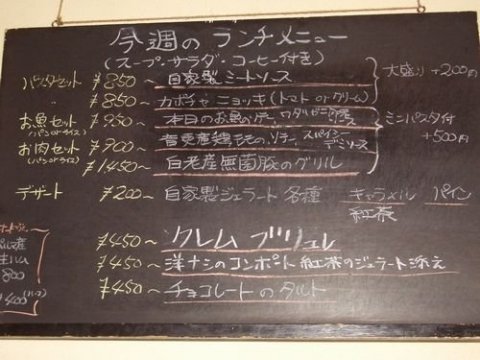 今週の ランチメニュー
(スープ・サラダ・コーヒー付き)
パスタセット ¥850~ 自家製ミートソース
〃 ¥850~ カボチャニョッキ(トマト or クリーム)
大盛り +200円
お魚セット ¥950~ 本日のお魚の
(パンorライス)
お肉セット ¥900~ 産鶏ももの
(パンorライス)
¥1450~ 白老産無菌豚のグリル
ミニパスタ付
+500円
デザート ¥200~ 自家製ジェラート 各種 キャラメル パイン
紅茶
¥450~ クレム ブリュレ
¥450~ 洋ナシのコンポート 紅茶のジェラート添え
¥450~ チョコレートのタルト
生ハム
800
1400